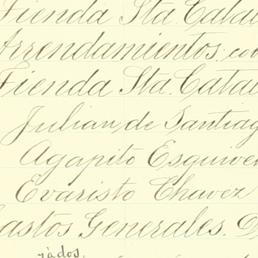 Tienda Sta Catal
Arrendamientos, co
Tienda Sta. Catal
Julian de Santiag
Agapito Esquive
Evaristo Chavez
Gastos Generales.